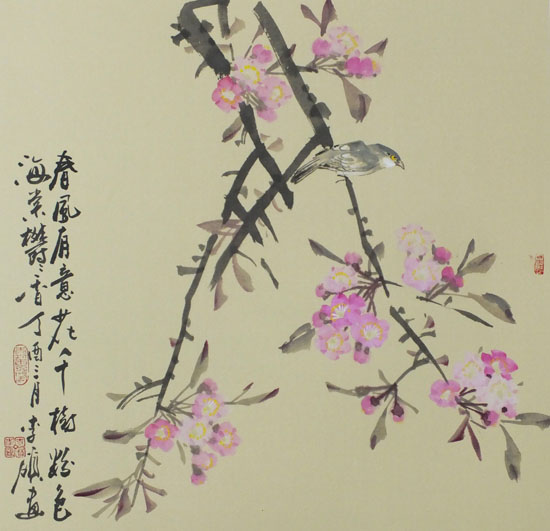 春風有意花千樹粉色
海棠欝々香丁酉三月李碩画